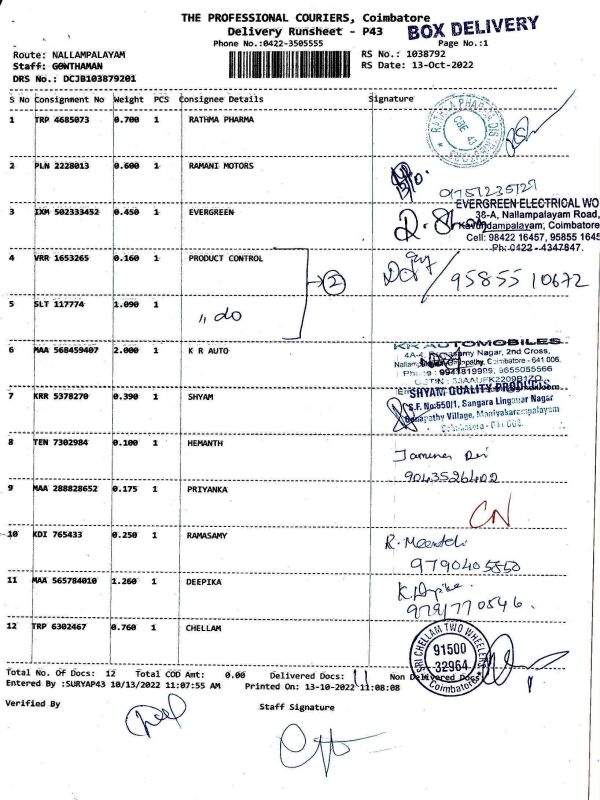 THE PROFESSIONAL COURIERS, Coimbatore
Delivery Runsheet - P43
BOX DELIVERY
Phone No.:0422-3505555
Page No.:1
Route: NALLAMPALAYAM
RS No.: 1038792
Staff: GOWTHAMAN
RS Date: 13-Oct-2022
DRS No.: DCJB103879201
S No Consignment No Weight PCS Consignee Details Signature
1 TRP 4685073 0.700 1 RATHMA PHARMA
2 PLN 2228013 0.600 1 RAMANI MOTORS
9751235127
3 IXM 502333452 0.450 1 EVERGREEN
EVERGREEN ELECTRICAL WO
38-A, Nallampalayam Road,
Kavundampalayam, Coimbatore
Cell: 98422 16457, 95855 1645
Ph: 0422 - 4347847.
4 VRR 1653265 0.160 1 PRODUCT CONTROL
2
9585510672
5 SLT 117774 1.090 1 ,, do
6 MAA 568459407 2.000 1 K R AUTO
KR AUTOMOBILES
Nagar, 2nd Cross,
Coimbatore - 641 006.
9655055566
7 KRR 5378270 0.390 1 SHYAM
SHYAM QUALITY PRODUCTS
S.F. No:550/1, Sangara Linganar Nagar
Ganapathy Village, Maniyakarampalayam
Coimbatore
8 TEN 7302984 0.100 1 HEMANTH
9043526402
9 MAA 288828652 0.175 1 PRIYANKA
CN
10 KDI 765433 0.250 1 RAMASAMY
9790405550
11 MAA 565784010 1.260 1 DEEPIKA
9791770546.
12 TRP 6302467 0.760 1 CHELLAM
SRI CHELLAM TWO WHEELERS
91500
32964
Coimbatore
Total No. Of Docs: 12 Total COD Amt: 0.00 Delivered Docs: 11 Non Delivered Docs
Entered By :SURYAP43 10/13/2022 11:07:55 AM Printed On: 13-10-2022 11:08:08
Verified By
Staff Signature